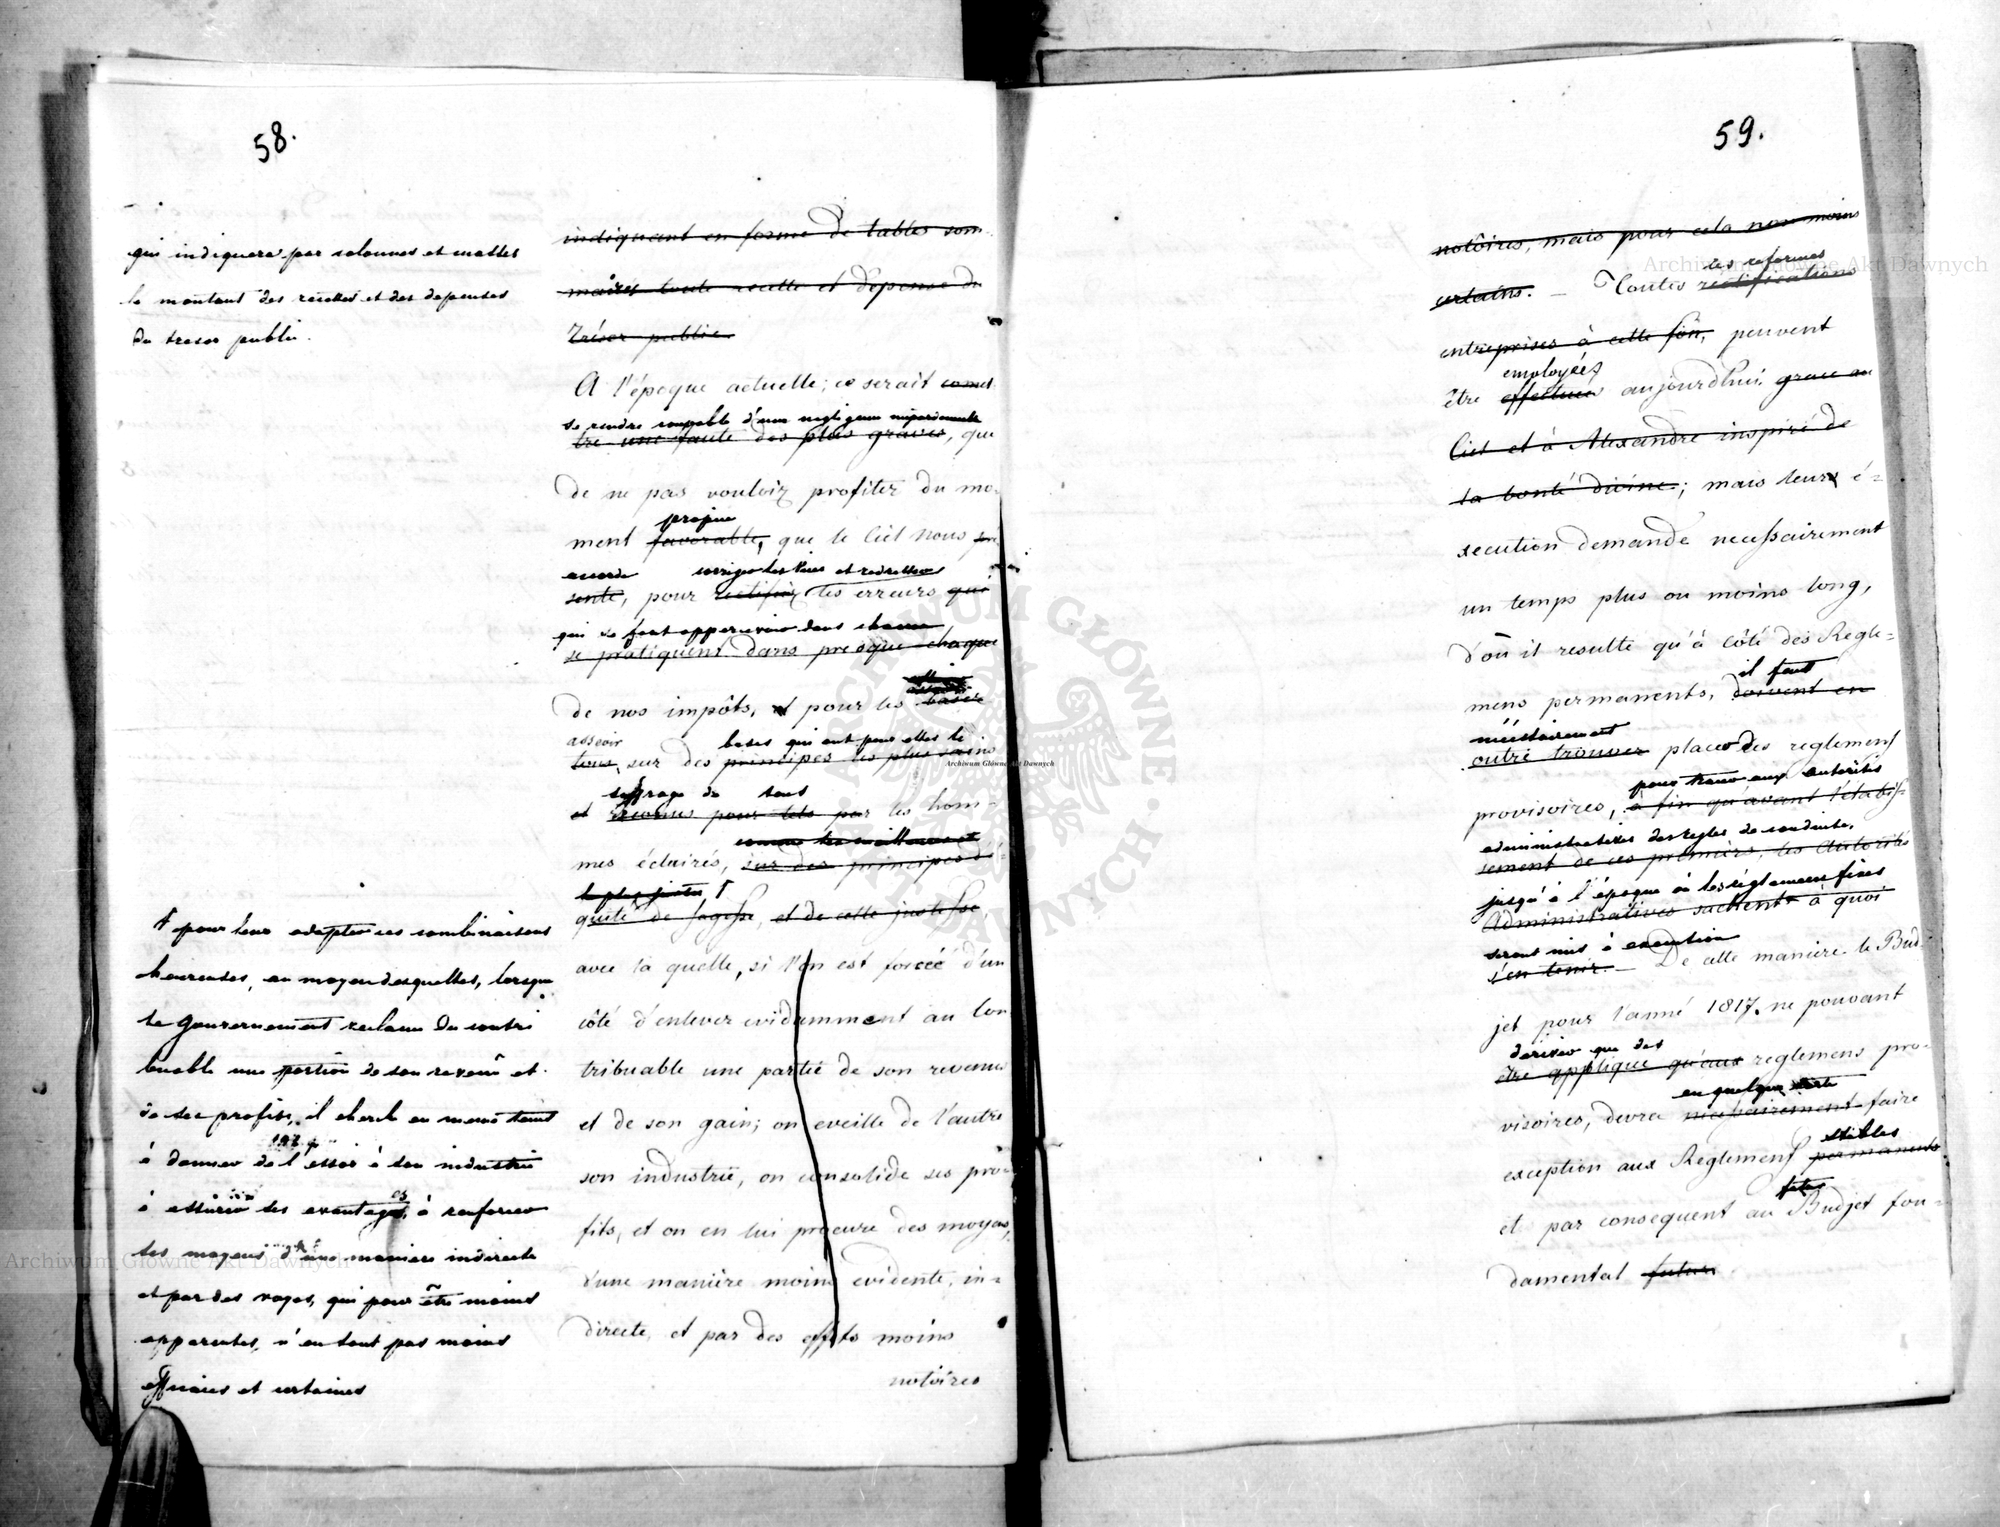 58.
qui indiquera par colonnes et cadres
le montant des recettes et des depenses
du tresor public.
indiquant en forme de tables som-
maires toute recette et dépense du
trésor public.
A l'époque actuelle; ce serait comet-
se rendre coupable d'une negligence impardonnable
tre une faute des plus graves, que
de ne pas vouloir profiter du mo-
propice
ment favorable, que le Ciel nous pré-
accorde corriger les vices et redresser
sente, pour rectifier les erreurs qui
qui se font appercevoir dans chacun
se pratiquent dans presque chaque
de nos impôts, et pour les baser
asseoir bases qui ont pour elles le
tous, sur des principes les plus sains
suffrage de tous
et reconnus pour tels par les hom-
mes éclairés, sur des principes d'é-
le plus justes †
quité de sagesse, et de cette justesse,
avec la quelle, si l'on est forcéé d'un
côté d'enlever evidamment au Con-
tribuable une partie de son revenus
et de son gain; on eveille de l'autre
son industrie, on consolide ses pro-
fits, et on en lui procure des moyens,
d'une manière moins evidente, in-
directe, et par des effets moins
notoires
† pour leur adapter ces combinaisons
heureuses, au moyen desquelles, lorsque
le Gouvernement reclame du contri
buable une portion de son revenu et
de ses profits, il cherche en meme tems
à donner de l'essor à son industrie
à assurer ses avantages, à renforcer
ses moyens d'une maniere indirecte
et par des voyes, qui pour être moins
apparentes, n'en sont pas moins
efficaces et certaines
59.
notoires, mais pour cela non moins
certains. — Toutes rectifications
les reformes
entreprises à cette fin, peuvent
employées
être effectuées aujourd'hui grace au
Ciel et à Alexandre inspiré de
la bonté divine; mais leurs é-
xecution demande necessairement
un temps plus ou moins long,
d'où il resulte qu'à côté des Regle-
il faut
mens permanents, doivent en
nécessairement
outre trouver placer des reglemens
pour tracer aux autorités
provisoires, à fin qu'avant l'établis-
administratives des regles de conduite,
sement de ces premiers, les Autorités
jusqu'à l'époque où les réglemens fixes
Administratives sachent à quoi
seront mis à execution
s'en tenir. — De cette manière le Bud-
jet pour l'anné 1817. ne pouvant
dériver que des
être appliqué qu'aux reglemens pro-
en quelque sorte
visoires, devra necessairement faire
stables
exception aux Reglemens permanents
et par consequent au Budjet fon-
damental futur
Archiwum Główne Akt Dawnych
Archiwum Główne Akt Dawnych
Archiwum Główne Akt Dawnych
ARCHIWUM GŁÓWNE AKT DAWNYCH